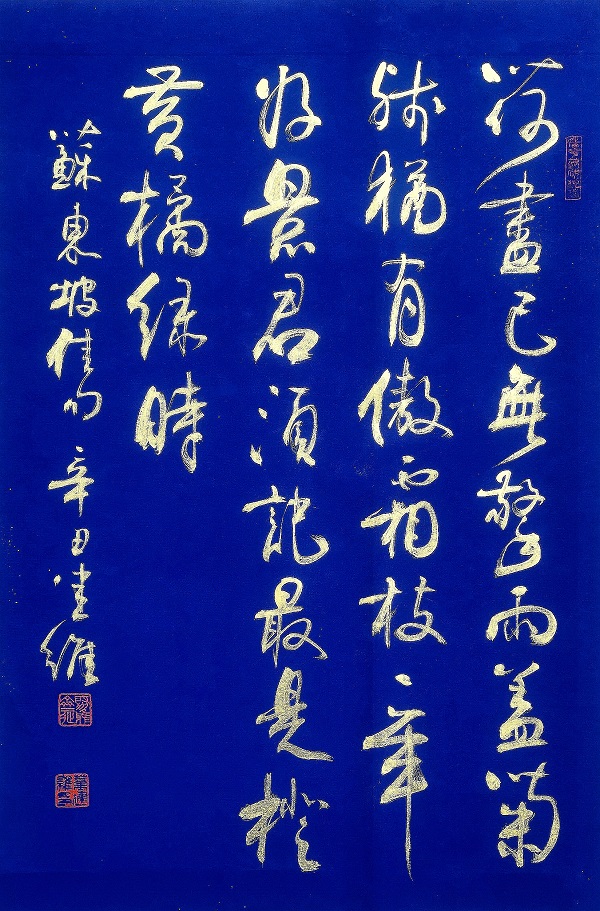 荷盡已無擎雨盖菊
殘猶有傲霜枝一年
好景君須記最是橙
黄橘綠時
蘇東坡佳句 辛丑 維